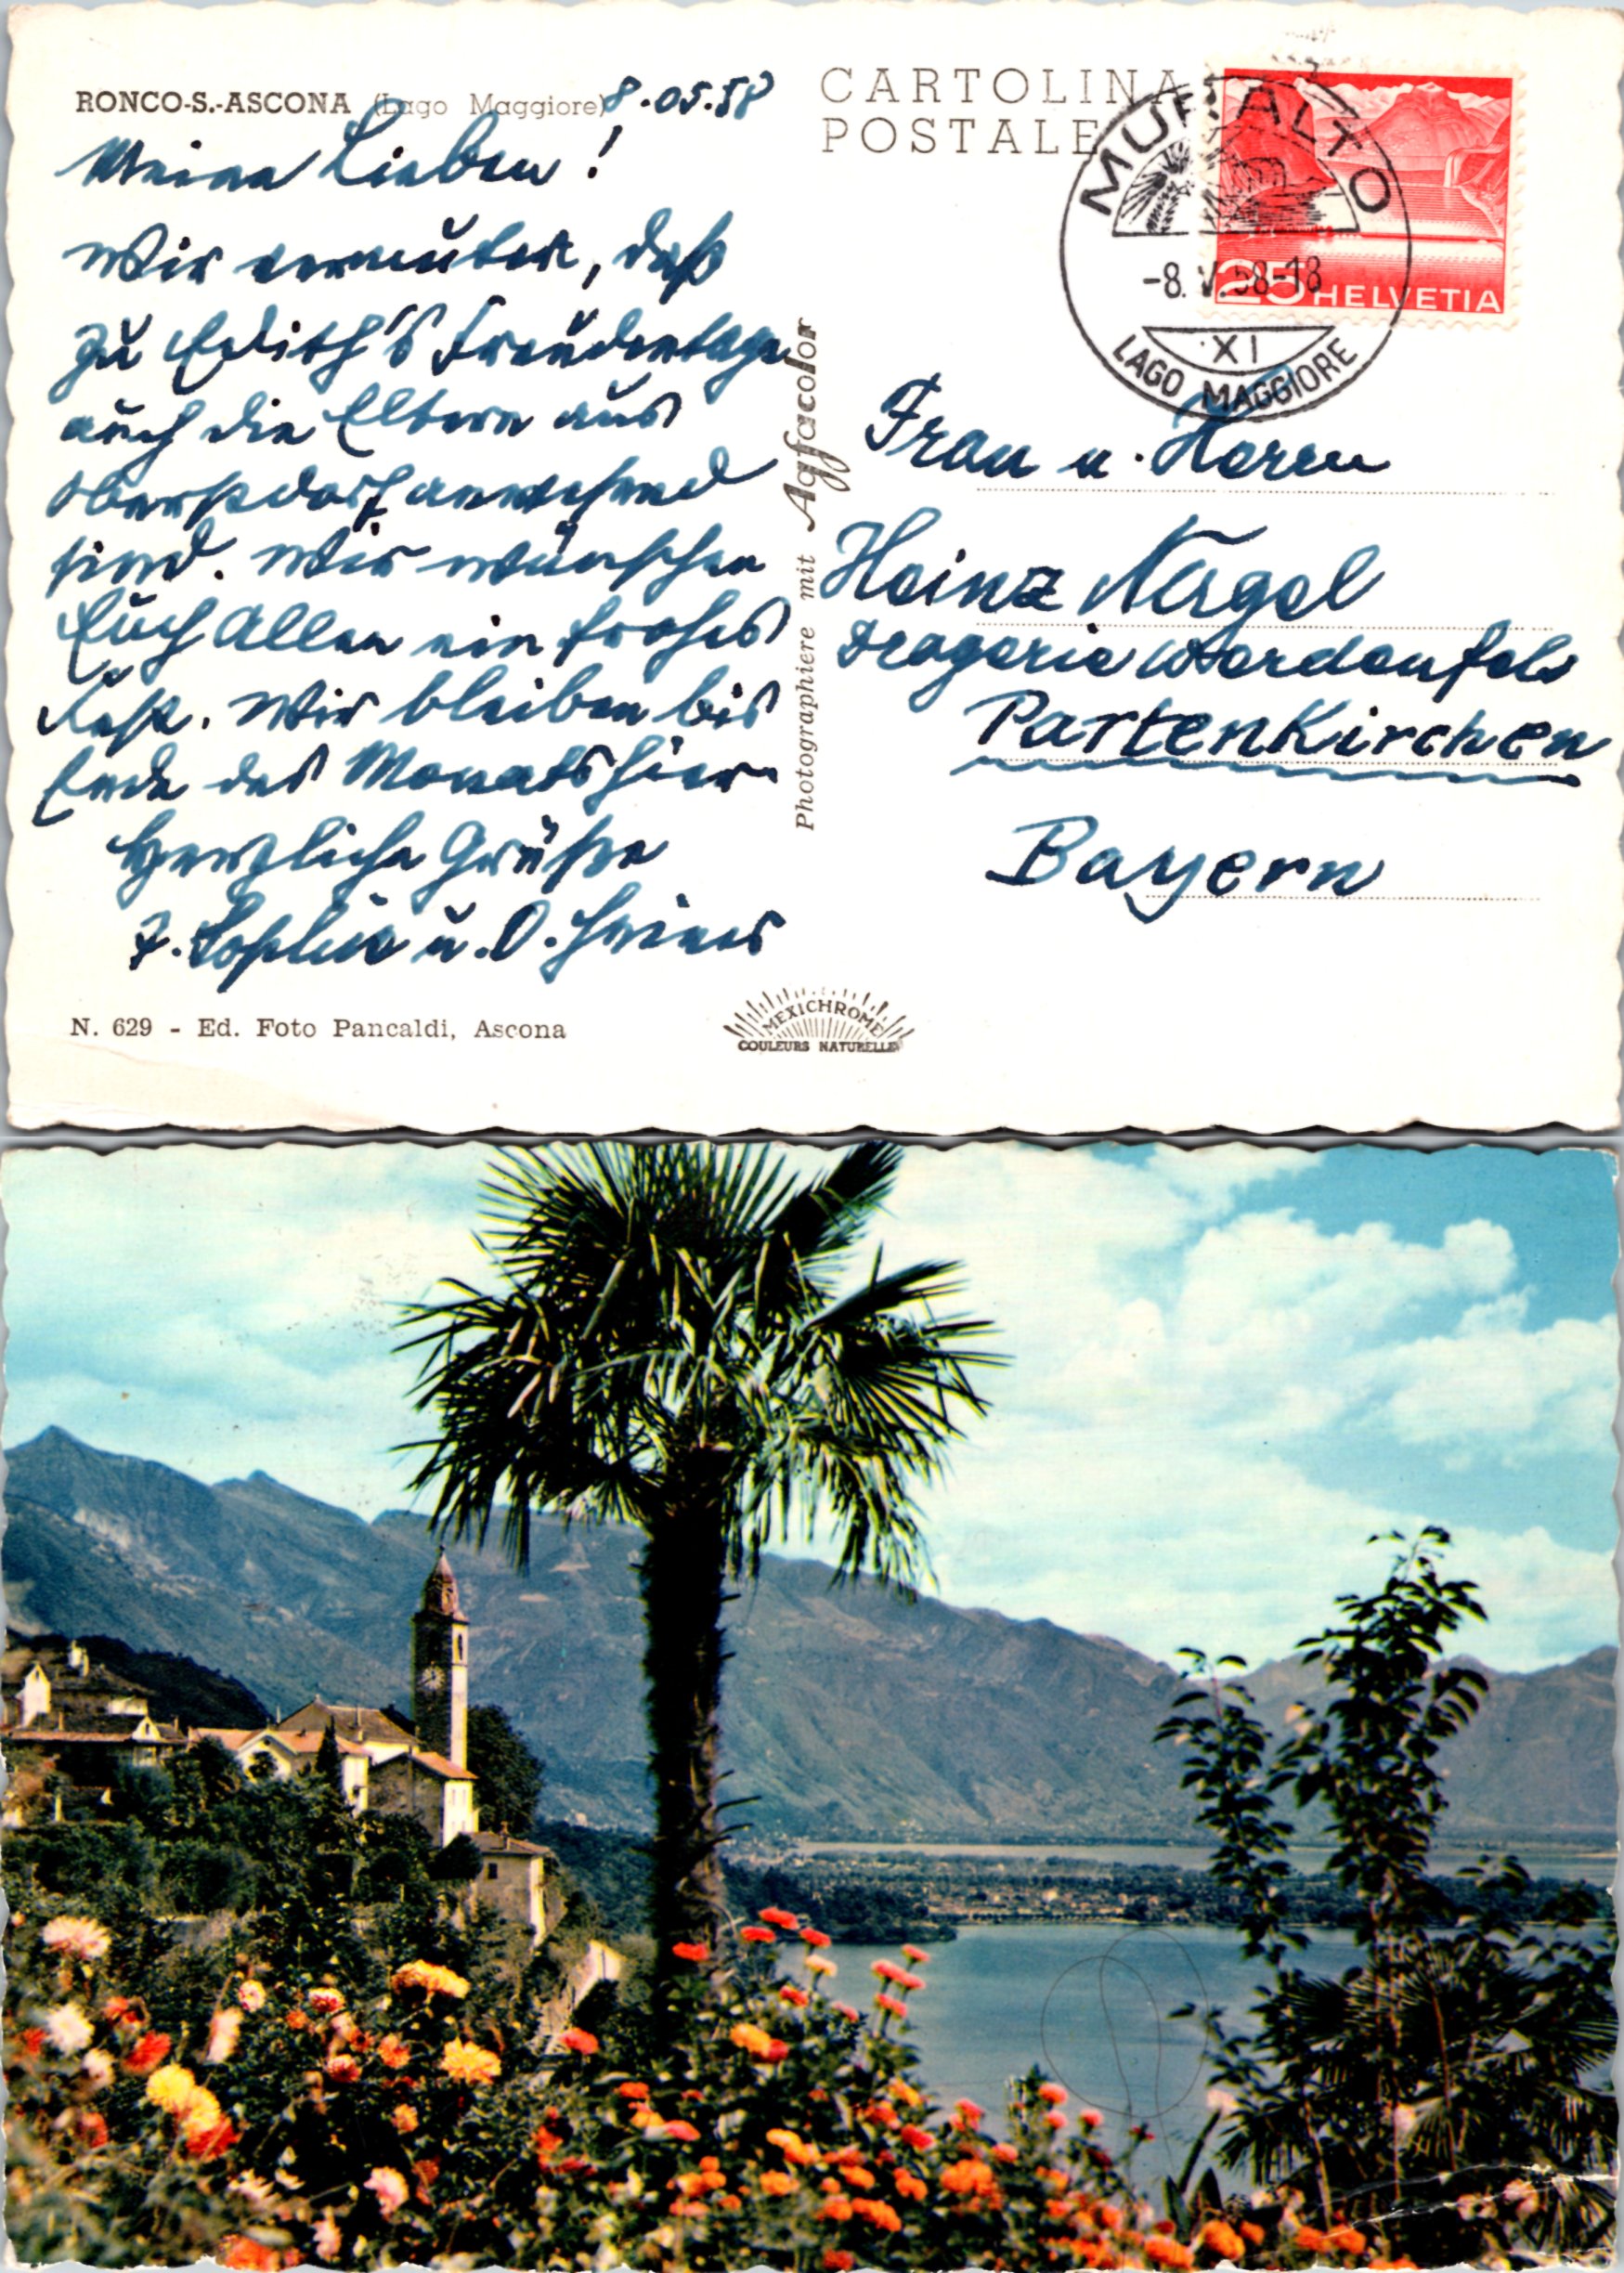 RONCO-S.-ASCONA (Lago Maggiore) 8.05.58
Meine Lieben!
Wir vermuten, daß
zu Edith's Freudentage
auch die Eltern aus
Oberstdorf anwesend
sind. Wir wünschen
Euch Allen ein frohes
Fest. Wir bleiben bis
Ende des Monats hier.
Herzliche Grüße
u. O.
N. 629 - Ed. Foto Pancaldi, Ascona
Photographiere mit Agfacolor
MEXICHROME
COULEURS NATURELLES
CARTOLINA
POSTALE
MURALTO
-8.V.58-18
XI
LAGO MAGGIORE
25 HELVETIA
Frau u. Herrn
Heinz Nergel
Drogerie Werdenfels
Partenkirchen
Bayern